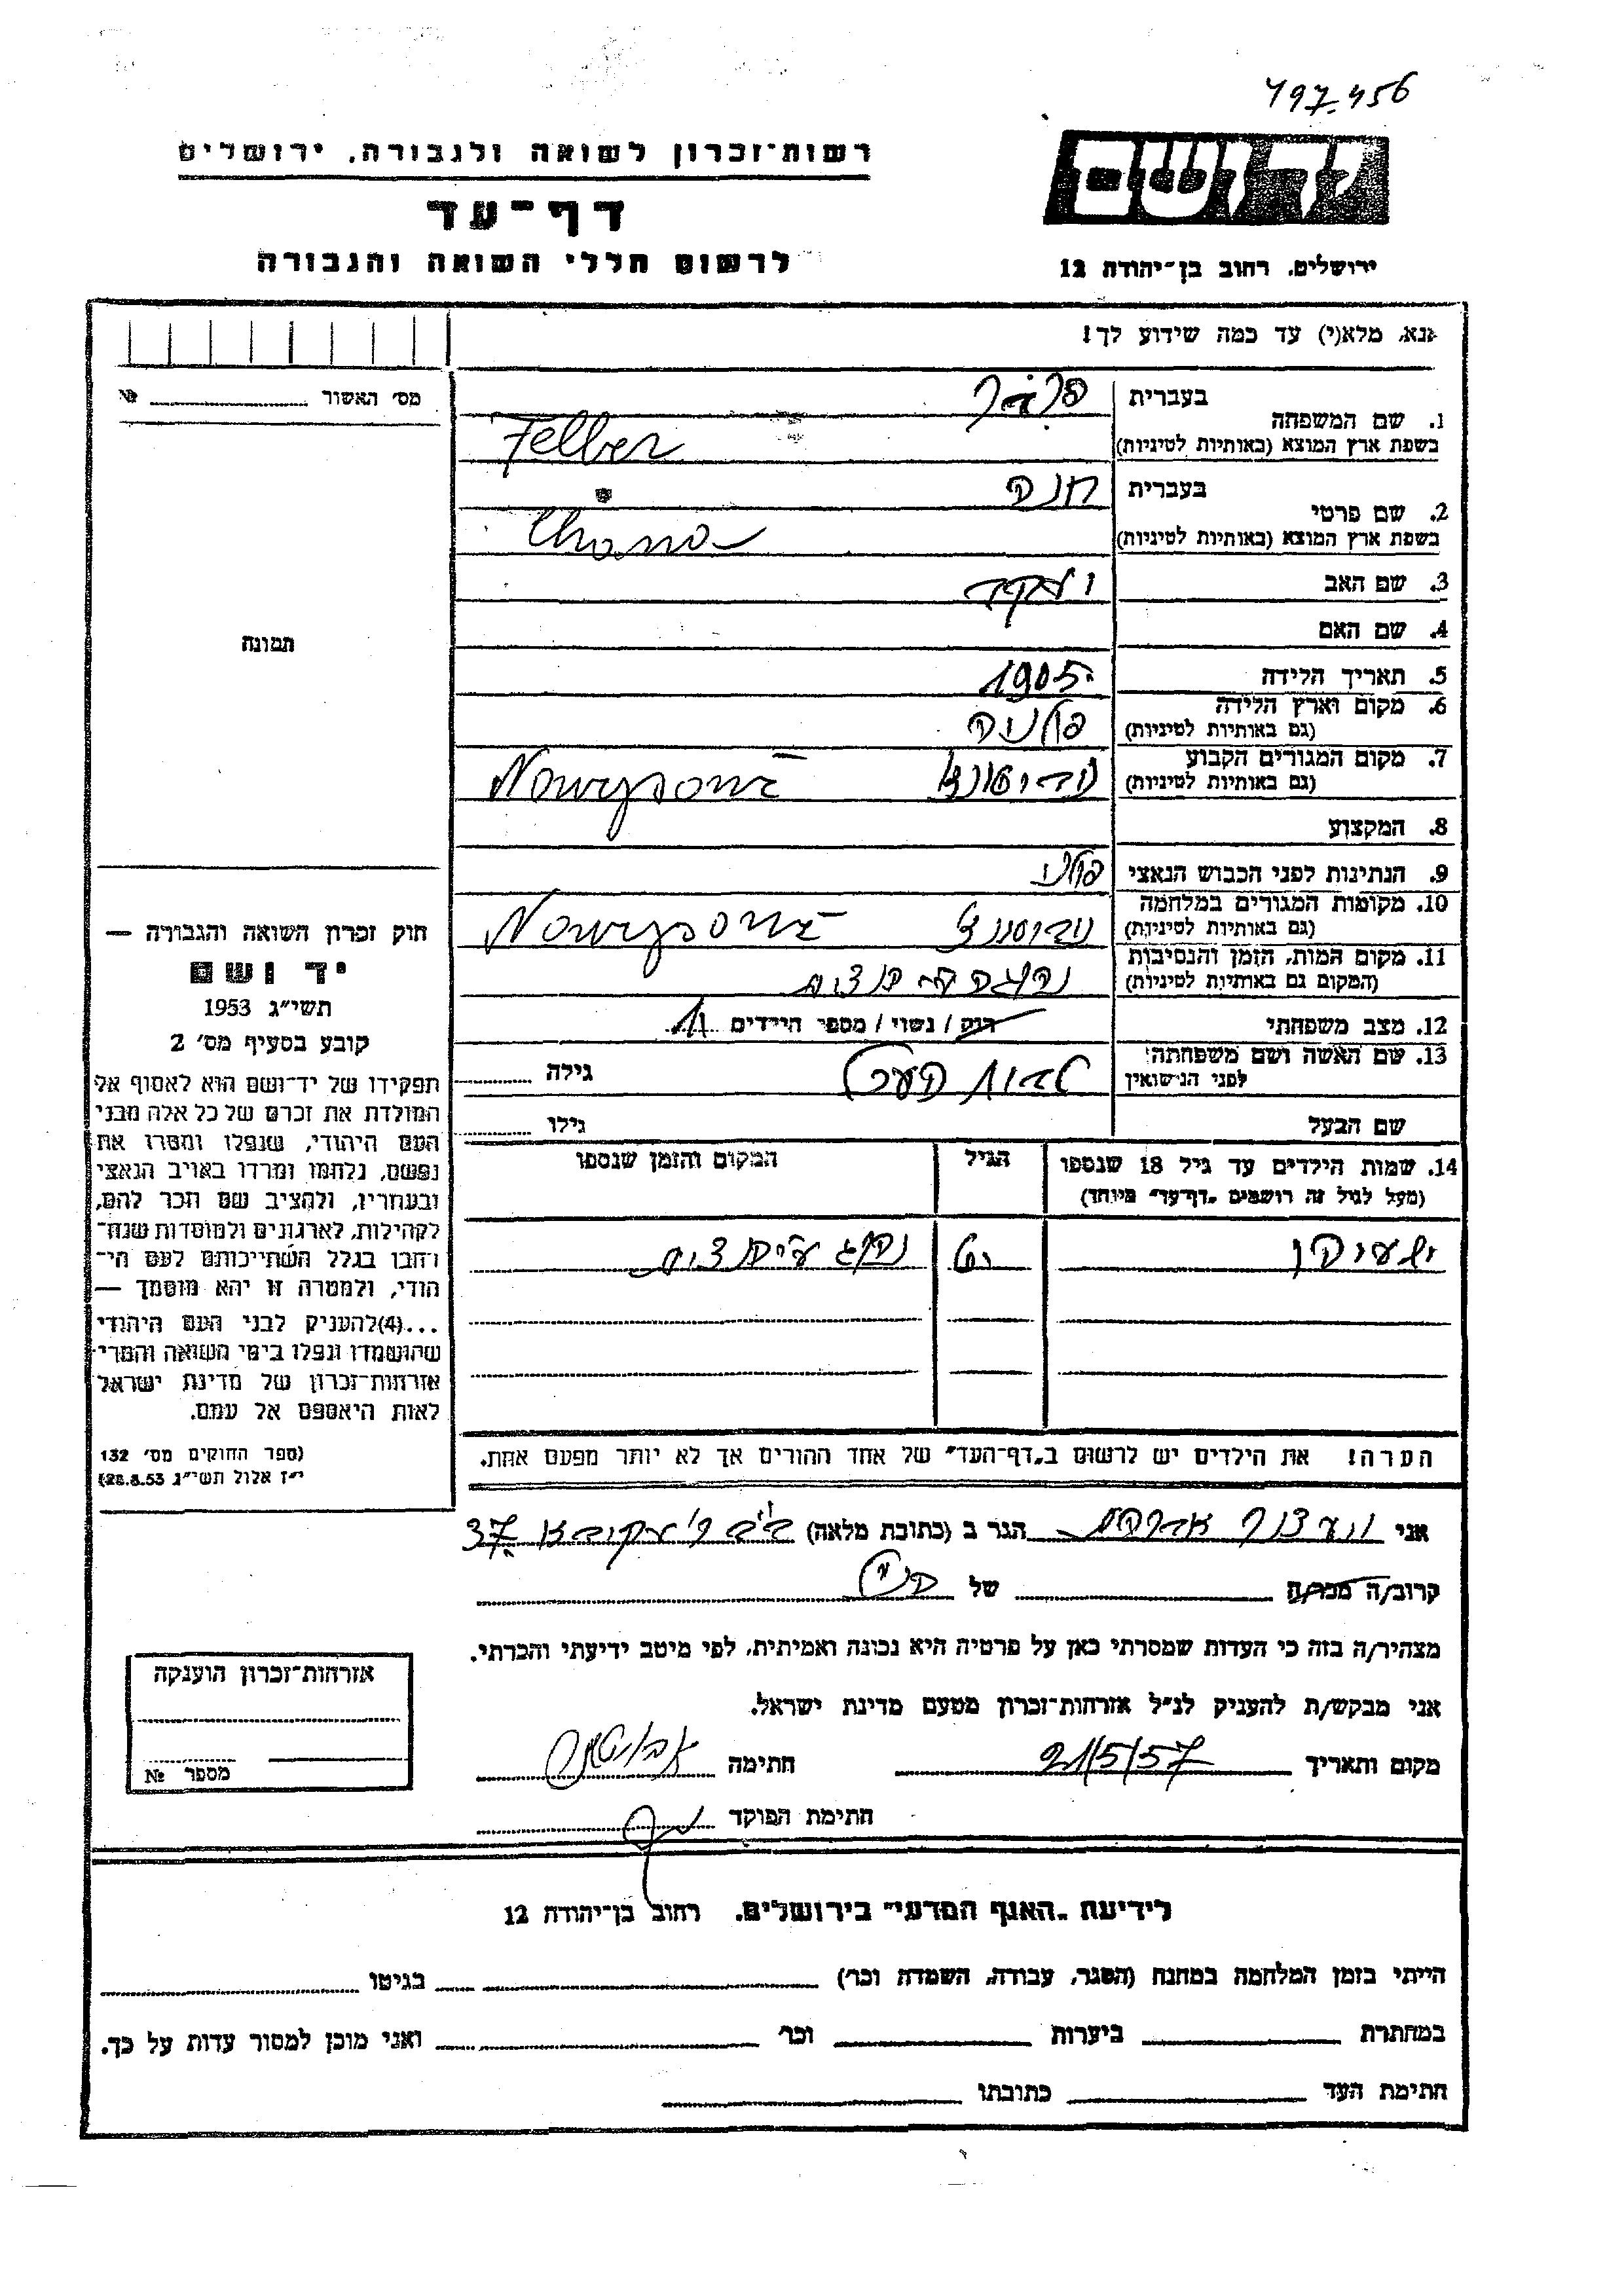 497.456
רשות־זכרון לשואה ולגבורה, ירושלים
דף־עד
לרשום חללי השואה והגבורה
ידושם
ירושלים, רחוב בן־יהודה 12
נא, מלא(י) עד כמה שידוע לך!
מס' האשור №
1. שם המשפחה
בעברית פלבר
בשפת ארץ המוצא (באותיות לטיניות) Felber
2. שם פרטי
בעברית חנה
בשפת ארץ המוצא (באותיות לטיניות) Chana
3. שם האב יעקב
4. שם האם
5. תאריך הלידה 1905
6. מקום וארץ הלידה
(גם באותיות לטיניות) פולניה
7. מקום המגורים הקבוע
(גם באותיות לטיניות) Nowysonz
8. המקצוע
9. הנתינות לפני הכבוש הנאצי פולני
10. מקומות המגורים במלחמה
(גם באותיות לטיניות) נובי סונץ Nowysonz
11. מקום המות, הזמן והנסיבות
(המקום גם באותיות לטיניות)
12. מצב משפחתי רוק / נשוי / מספר הילדים 1
13. שם האשה ושם משפחתה
לפני הנישואין גילה
שם הבעל גילו
14. שמות הילדים עד גיל 18 שנספו
(מעל לגיל זה רושמים "דף־עד" מיוחד)
הגיל
המקום והזמן שנספו
הערה! את הילדים יש לרשום ב"דף־העד" של אחד ההורים אך לא יותר מפעם אחת.
תמונה
חוק זכרון השואה והגבורה —
יד ושם
תשי"ג 1953
קובע בסעיף מס' 2
תפקידו של יד־ושם הוא לאסוף אל
המולדת את זכרם של כל אלה מבני
העם היהודי, שנפלו ומסרו את
נפשם, נלחמו ומרדו באויב הנאצי
ובעוזריו, ולהציב שם וזכר להם,
לקהילות, לארגונים ולמוסדות שנח־
רבו בגלל השתייכותם לעם הי־
הודי, ולמטרה זו יהא מוסמך —
...(4) להעניק לבני העם היהודי
שהושמדו ונפלו בימי השואה והמרי
אזרחות־זכרון של מדינת ישראל
לאות היאספם אל עמם.
(ספר החוקים מס' 132
י"ז אלול תשי"ג 28.8.53)
אני הגר ב (כתובת מלאה) ב"ב ר' עקיבא 37
קרוב/ה מכר/ה של
מצהיר/ה בזה כי העדות שמסרתי כאן על פרטיה היא נכונה ואמיתית, לפי מיטב ידיעתי והכרתי.
אני מבקש/ת להעניק לנ"ל אזרחות־זכרון מטעם מדינת ישראל.
מקום ותאריך 21/5/57 חתימה
חתימת הפוקד
אזרחות־זכרון הוענקה
מספר №
לידיעת "האגף המדעי" בירושלים, רחוב בן־יהודה 12
הייתי בזמן המלחמה במחנה (הסגר, עבודה, השמדה וכר') בגיטו
במחתרת ביערות וכר' ואני מוכן למסור עדות על כך.
חתימת העד כתובתו